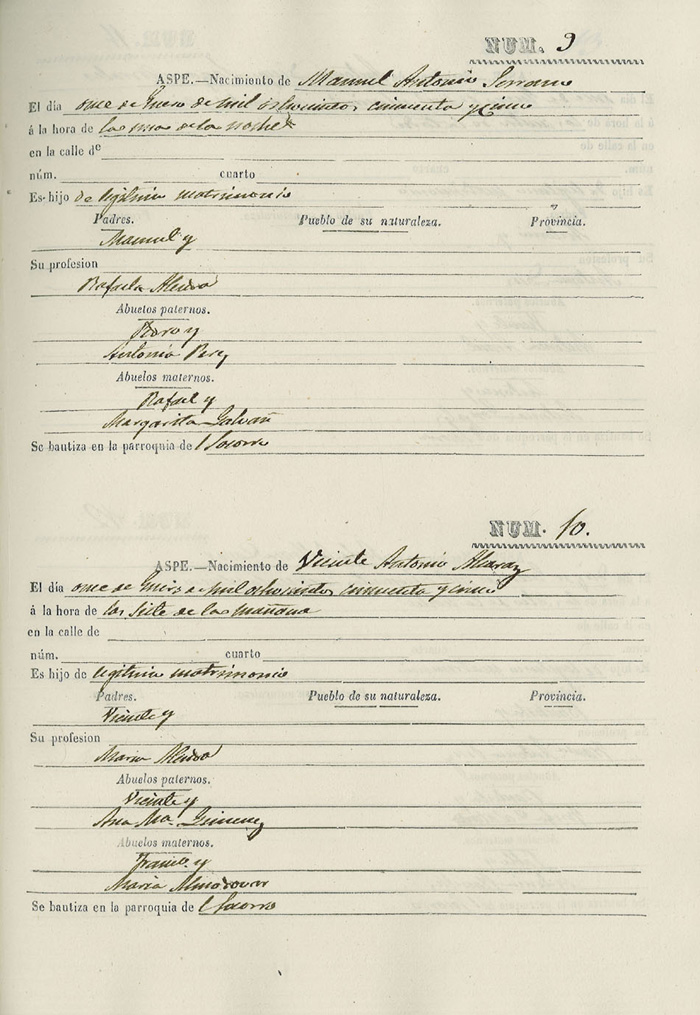 NUM. 9
ASPE.—Nacimiento de Manuel Antonio Serrano
El día once de Enero de mil ochocientos cincuenta y cinco
á la hora de las once de la noche
en la calle de
núm. cuarto
Es hijo de legitimo matrimonio
Padres. Pueblo de su naturaleza. Provincia.
Manuel y
Su profesion
Rafaela
Abuelos paternos.
y
Antonia Perez
Abuelos maternos.
Rafael y
Margarita Galvañ
Se bautiza en la parroquia de l Socorro
NUM. 10.
ASPE.—Nacimiento de Vicente Antonio Alcaraz
El día once de Enero de mil ochocientos cincuenta y cinco
á la hora de las siete de la mañana
en la calle de
núm. cuarto
Es hijo de legitimo matrimonio
Padres. Pueblo de su naturaleza. Provincia.
Vicente y
Su profesion
Maria
Abuelos paternos.
Vicente y
Ana Ma. Gimenez
Abuelos maternos.
Franco. y
Maria Almodovar
Se bautiza en la parroquia de l Socorro